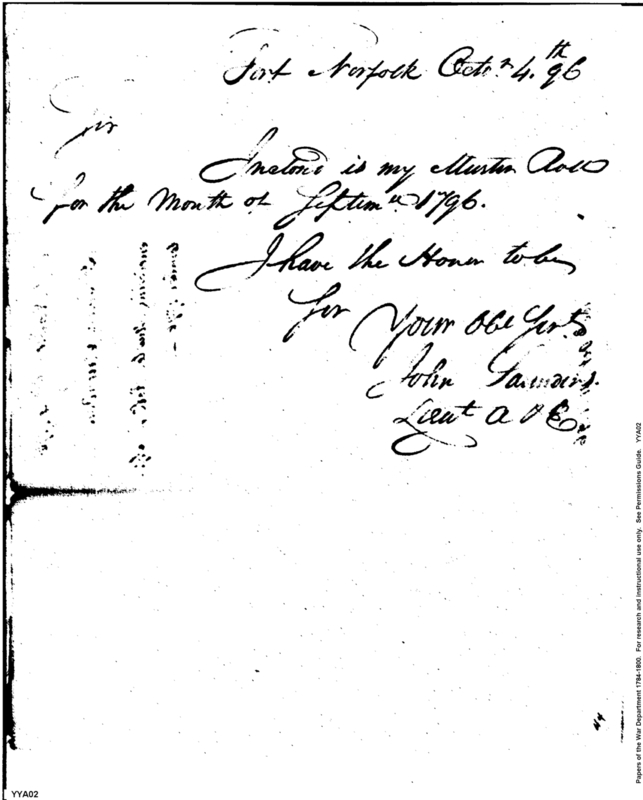 Fort Norfolk Octo.r 4.th 96
Sir
Inclosd is my Muster Roll
for the Month of Septem.r 1796.
I have the Honor to be
Sir
Your Obt Servt
John Saunders.
Lieut A & E
Papers of the War Department 1784-1800. For research and instructional use only. See Permissions Guide. YYA02
YYA02